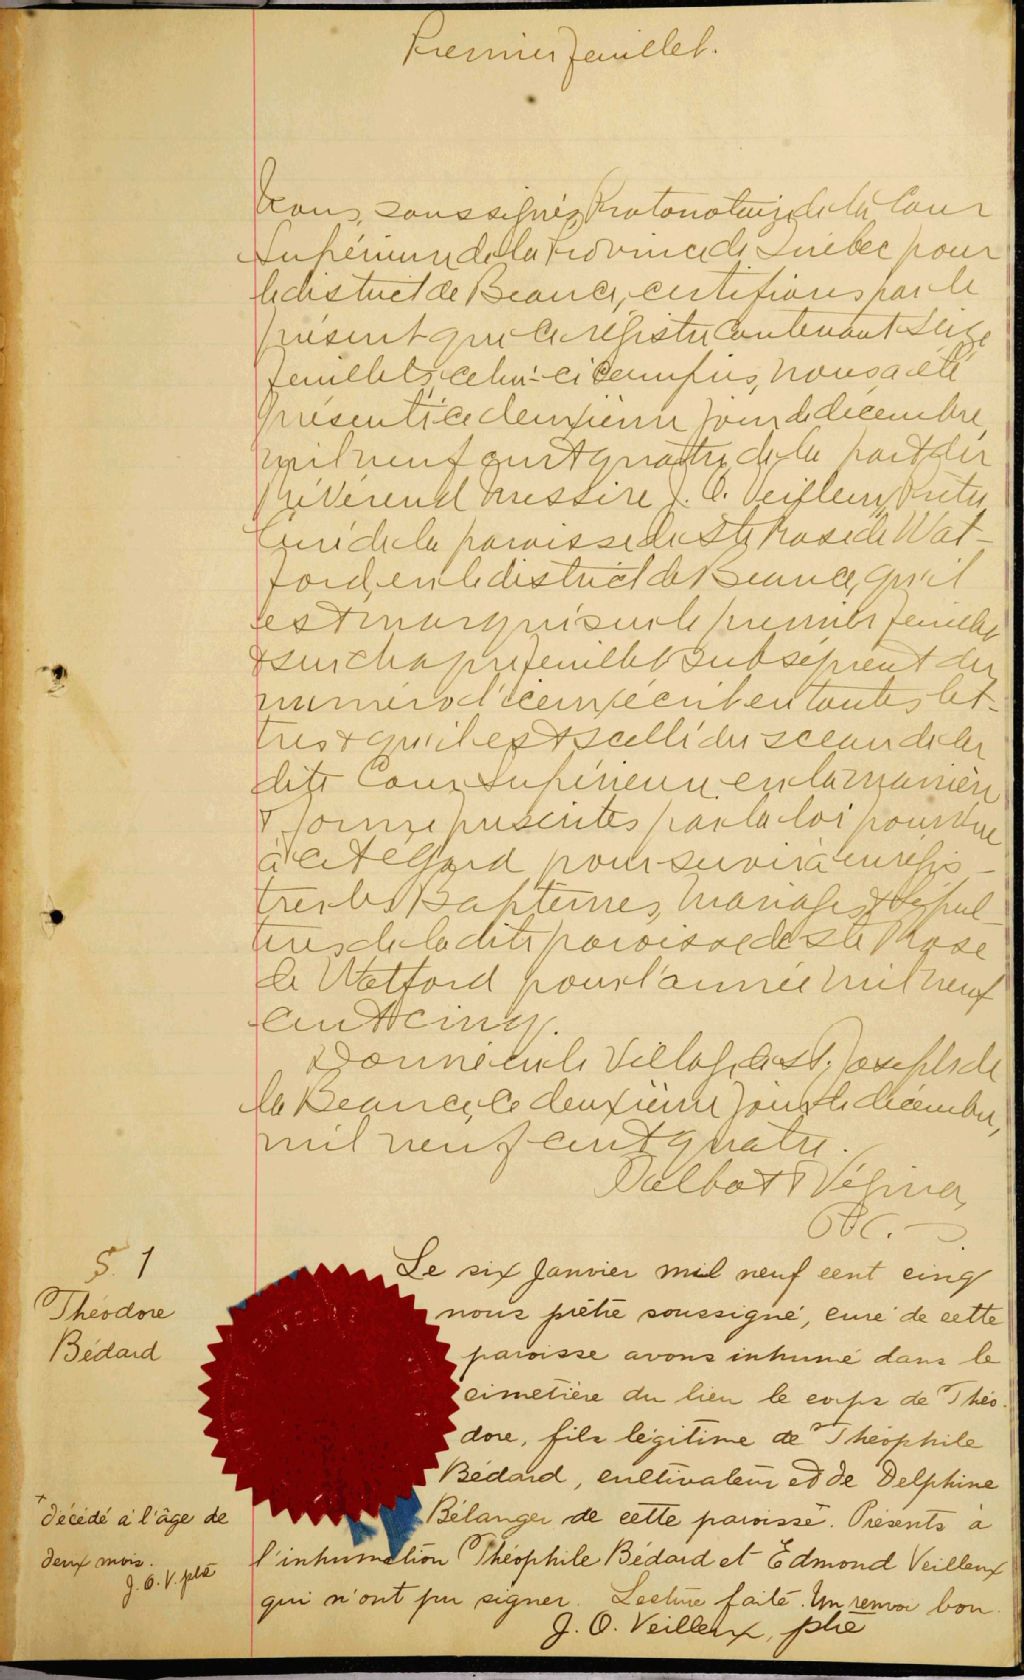 Premier feuillet.
Nous, soussignés, Protonotaire de la Cour
Supérieure de la Province de Québec pour
le district de Beauce, certifions par le
présent que ce régistre contenant seize
feuillets, celui-ci compris, nous a été
présenté ce deuxième jour de décembre,
mil neuf cent quatre, de la part du
révérend Messire J. O. Veilleux, Prêtre
Curé de la paroisse de Ste Rose de Wat-
ford, en le district de Beauce, qu'il
est marqué sur le premier feuillet
& sur chaque feuillet subséquent du
numéro d'iceux écrit en toutes let-
tres & qu'il est scellé du sceau de la
dite Cour Supérieure en la manière
& forme prescrites par la loi pourvue
à cet égard, pour servir à enrégis-
trer les Baptêmes, Mariages & Sépul-
tures de la dite paroisse de Ste Rose
de Watford pour l'année mil neuf
cent cinq.
Donné en le Village de St. Joseph de
la Beauce, ce deuxième jour de décembre,
mil neuf cent quatre.
Talbot & Vézina,
P.C.S.
S. 1
Théodore
Bédard
Le six Janvier mil neuf cent cinq
nous prêtre soussigné, curé de cette
paroisse avons inhumé dans le
cimetière du lieu le corps de Théo-
dore, fils légitime de Théophile
Bédard, cultivateur et de Delphine
Bélanger de cette paroisse. Présents à
l'inhumation Théophile Bédard et Edmond Veilleux
qui n'ont pu signer. Lecture faite. Un renvoi bon.
J. O. Veilleux, ptre
+ décédé à l'âge de
deux mois.
J. O. V. ptre